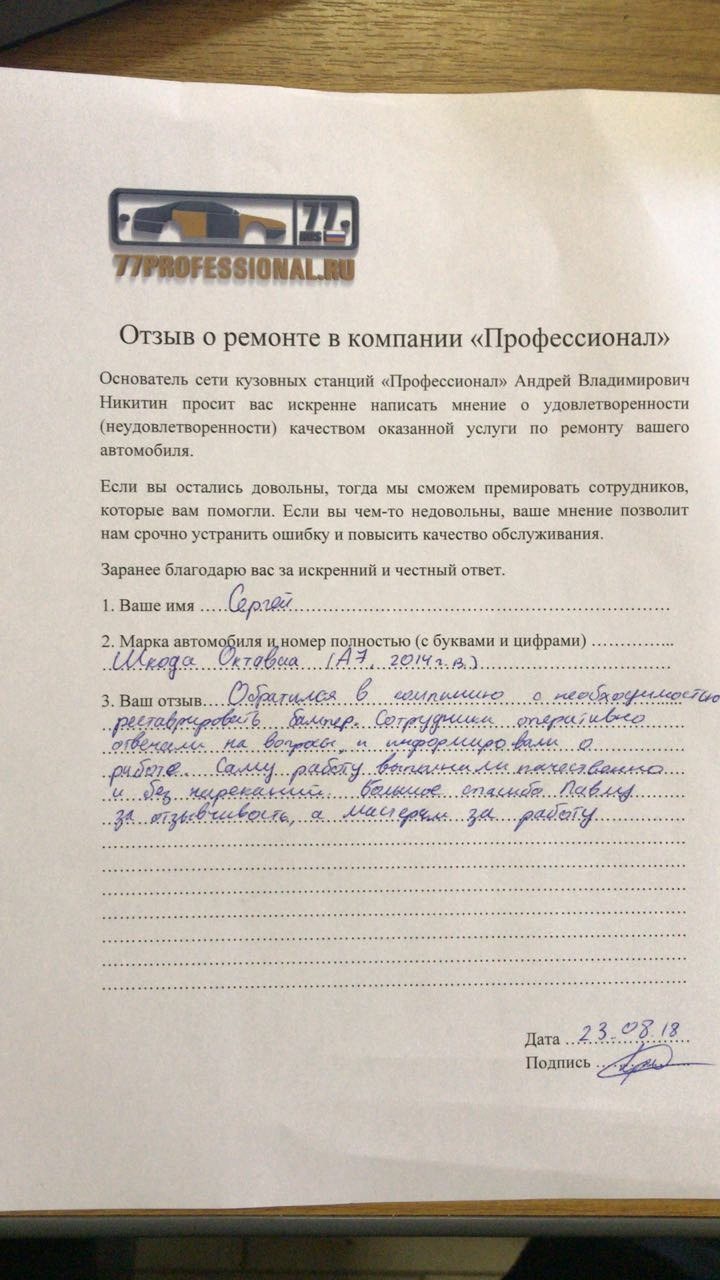 77
RUS
77PROFESSIONAL.RU
Отзыв о ремонте в компании «Профессионал»
Основатель сети кузовных станций «Профессионал» Андрей Владимирович
Никитин просит вас искренне написать мнение о удовлетворенности
(неудовлетворенности) качеством оказанной услуги по ремонту вашего
автомобиля.
Если вы остались довольны, тогда мы сможем премировать сотрудников,
которые вам помогли. Если вы чем-то недовольны, ваше мнение позволит
нам срочно устранить ошибку и повысить качество обслуживания.
Заранее благодарю вас за искренний и честный ответ.
1. Ваше имя Сергей
2. Марка автомобиля и номер полностью (с буквами и цифрами)
Шкода Октавиа (А7, 2014 г.в.)
3. Ваш отзыв Обратился в компанию с необходимостью
реставрировать бампер. Сотрудники оперативно
отвечали на вопросы, и информировали о
работе. Саму работу выполнили качественно
и без нареканий. Большое спасибо Павлу
за отзывчивость, а мастерам за работу
Дата 23.08.18
Подпись